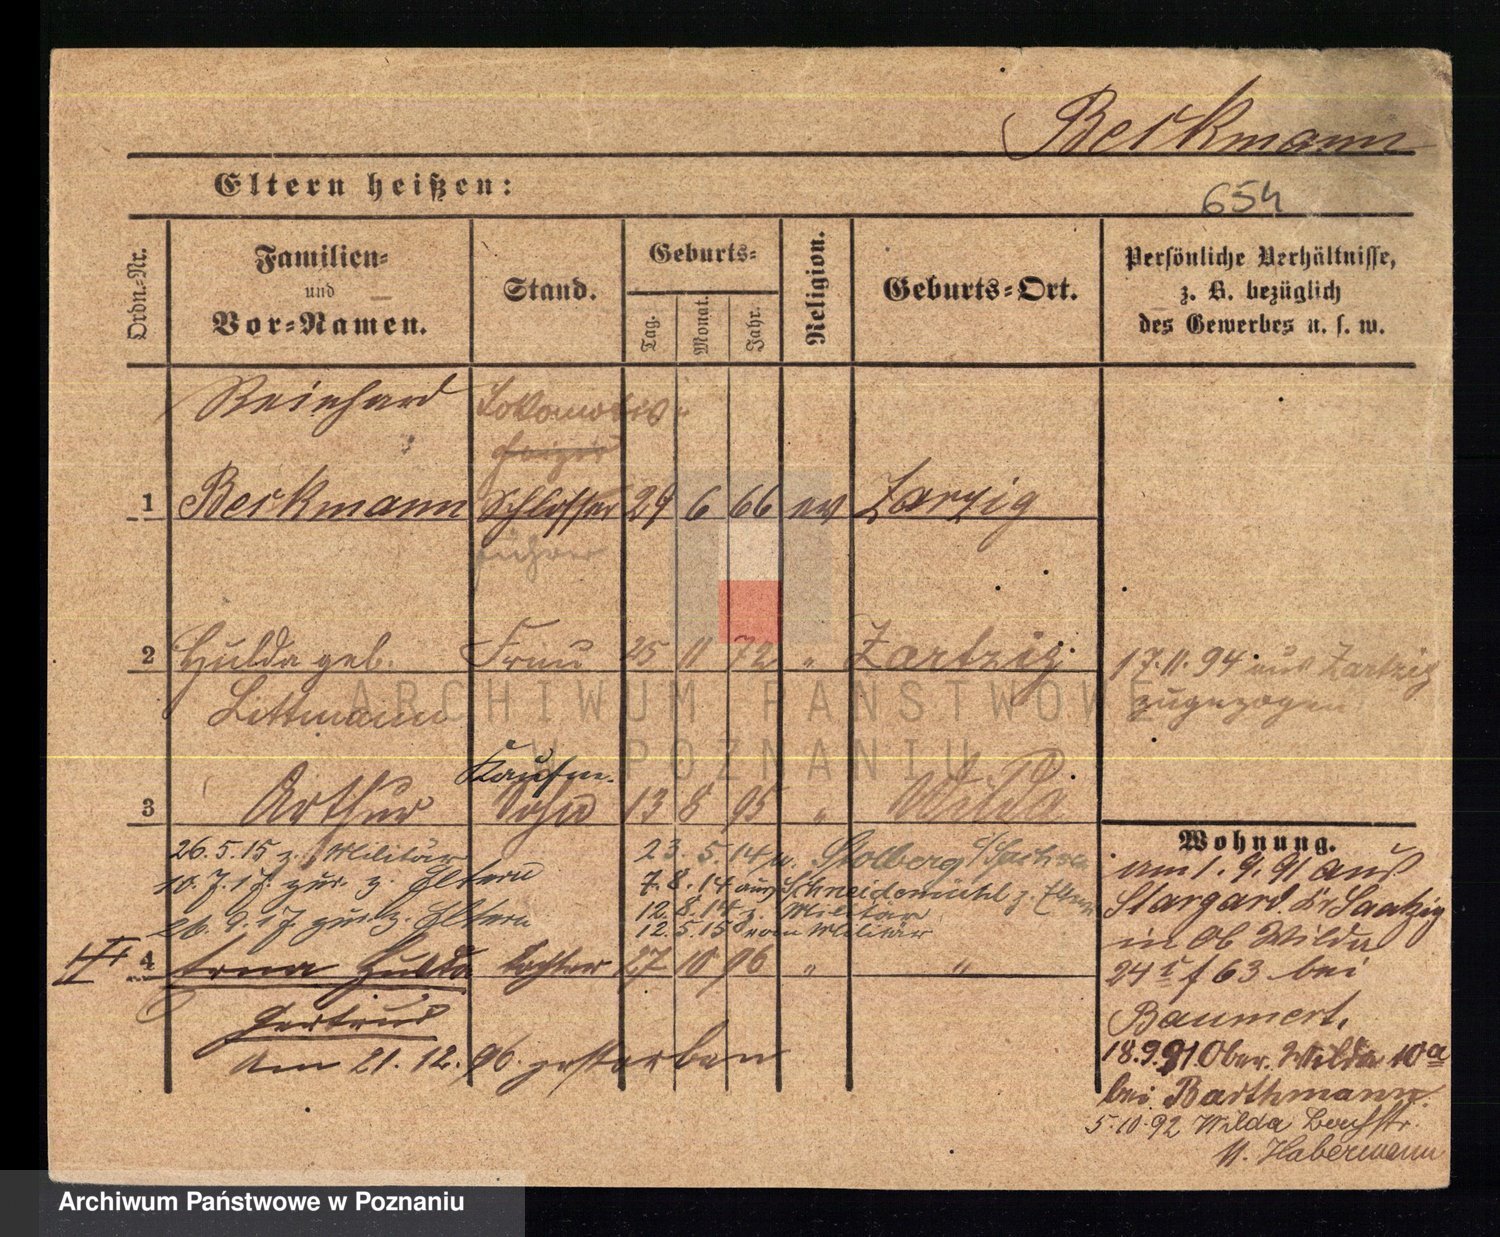 Beckmann
Eltern heißen:
654
Ordn.-Nr.
Familien-
und
Vor-Namen.
Stand.
Geburts-
Tag.
Monat.
Jahr.
Religion.
Geburts-Ort.
Persönliche Verhältnisse,
z. B. bezüglich
des Gewerbes u. s. w.
Reinhard Lokomotiv-
heizer
1 Beckmann Schlosser 29 6 66 ev Zarzig
führer
2 Hulda geb. Frau 25 11 72 " Zartzig 17.11.94 aus Zartzig
Littmann zugezogen
Kaufm.
3 Arthur Sohn 13 8 95 " Wilda
Wohnung.
26.5.15 z. Militär 23.5.14 n. Stolberg i/Sachsen
10.7.17 zur. z. Eltern 7.8.14 aus Schneidemühl z. Eltern
26.9.17 zur. z. Eltern 12.8.14 z. Militär
12.5.15 vom Militär
4 Erna Hulda Tochter 27 10 96 " "
Gertrud
am 21.12.96 gestorben
am 1.9.91 aus
Stargard Kr Saatzig
in Ob Wilda
24 63 bei
Baumert.
18.9.91 Ober. Wilda 10a
bei Barthmann.
5.10.92 Wilda
b. Habermann
ARCHIWUM PAŃSTWOWE
W POZNANIU
Archiwum Państwowe w Poznaniu